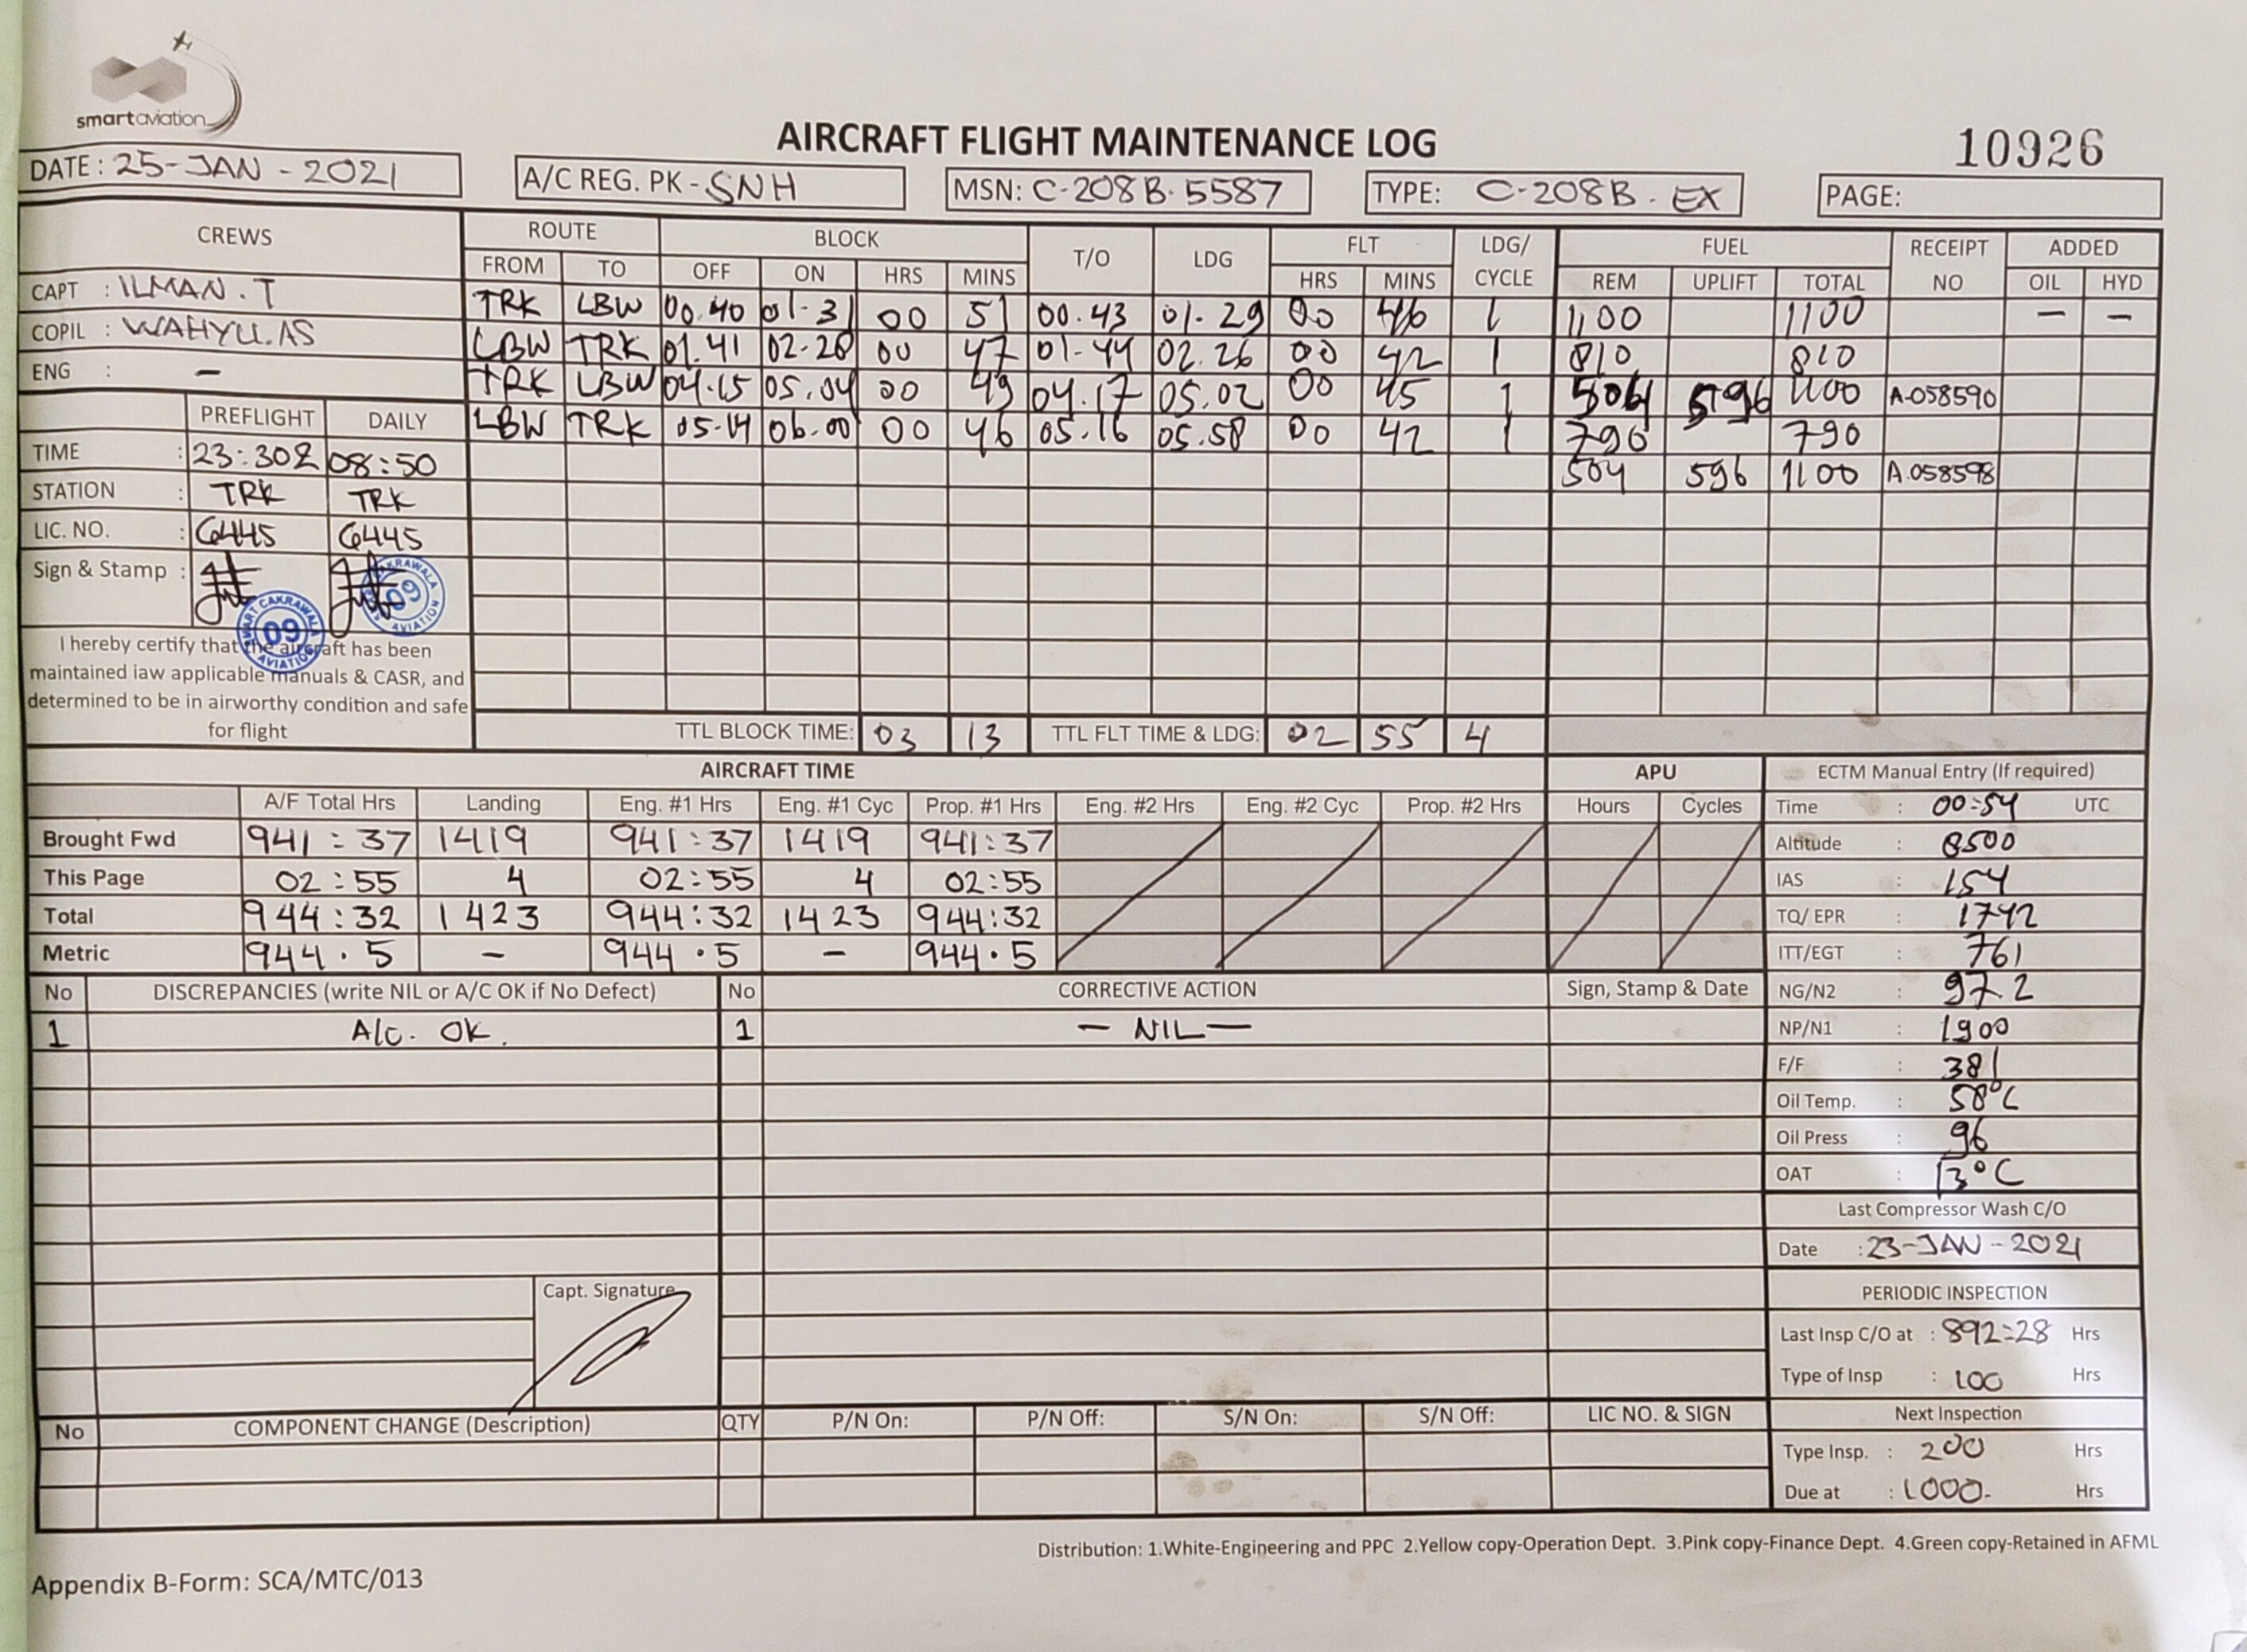 smartaviation
AIRCRAFT FLIGHT MAINTENANCE LOG
10926
DATE : 25-JAN-2021
A/C REG. PK-SNH
MSN: C-208B.5587
TYPE: C-208B.EX
PAGE:
CREWS ROUTE BLOCK T/O LDG FLT LDG/CYCLE FUEL RECEIPT NO ADDED
FROM TO OFF ON HRS MINS HRS MINS REM UPLIFT TOTAL OIL HYD
CAPT : ILMAN.T
COPIL : WAHYU.AS
ENG : -
TRK LBW 00.40 01.31 00 51 00.43 01.29 00 46 1 1100 1100 - -
LBW TRK 01.41 02.28 00 47 01.44 02.26 00 42 1 810 810
TRK LBW 04.15 05.04 00 49 04.17 05.02 00 45 1 504 596 1100 A.058590
LBW TRK 05.14 06.00 00 46 05.16 05.58 00 42 1 790 790
504 596 1100 A.058598
PREFLIGHT DAILY
TIME : 23:30Z 08:50
STATION : TRK TRK
LIC. NO. : 6445 6445
Sign & Stamp :
SMART CAKRAWALA AVIATION 09
CAKRAWALA AVIATION 09
I hereby certify that the aircraft has been
maintained iaw applicable manuals & CASR, and
determined to be in airworthy condition and safe
for flight
TTL BLOCK TIME: 03 13 TTL FLT TIME & LDG: 02 55 4
AIRCRAFT TIME APU
A/F Total Hrs Landing Eng. #1 Hrs Eng. #1 Cyc Prop. #1 Hrs Eng. #2 Hrs Eng. #2 Cyc Prop. #2 Hrs Hours Cycles
Brought Fwd 941:37 1419 941:37 1419 941:37
This Page 02:55 4 02:55 4 02:55
Total 944:32 1423 944:32 1423 944:32
Metric 944.5 - 944.5 - 944.5
ECTM Manual Entry (If required)
Time : 00:54 UTC
Altitude : 8500
IAS : 154
TQ/ EPR : 1742
ITT/EGT : 761
NG/N2 : 97.2
NP/N1 : 1900
F/F : 381
Oil Temp. : 58°C
Oil Press : 96
OAT : 13°C
Last Compressor Wash C/O
Date : 23-JAN-2021
PERIODIC INSPECTION
Last Insp C/O at : 892:28 Hrs
Type of Insp : 100 Hrs
Next Inspection
Type Insp. : 200 Hrs
Due at : 1000. Hrs
No DISCREPANCIES (write NIL or A/C OK if No Defect) No CORRECTIVE ACTION Sign, Stamp & Date
1 A/C. OK. 1 - NIL -
Capt. Signature
No COMPONENT CHANGE (Description) QTY P/N On: P/N Off: S/N On: S/N Off: LIC NO. & SIGN
Distribution: 1.White-Engineering and PPC 2.Yellow copy-Operation Dept. 3.Pink copy-Finance Dept. 4.Green copy-Retained in AFML
Appendix B-Form: SCA/MTC/013